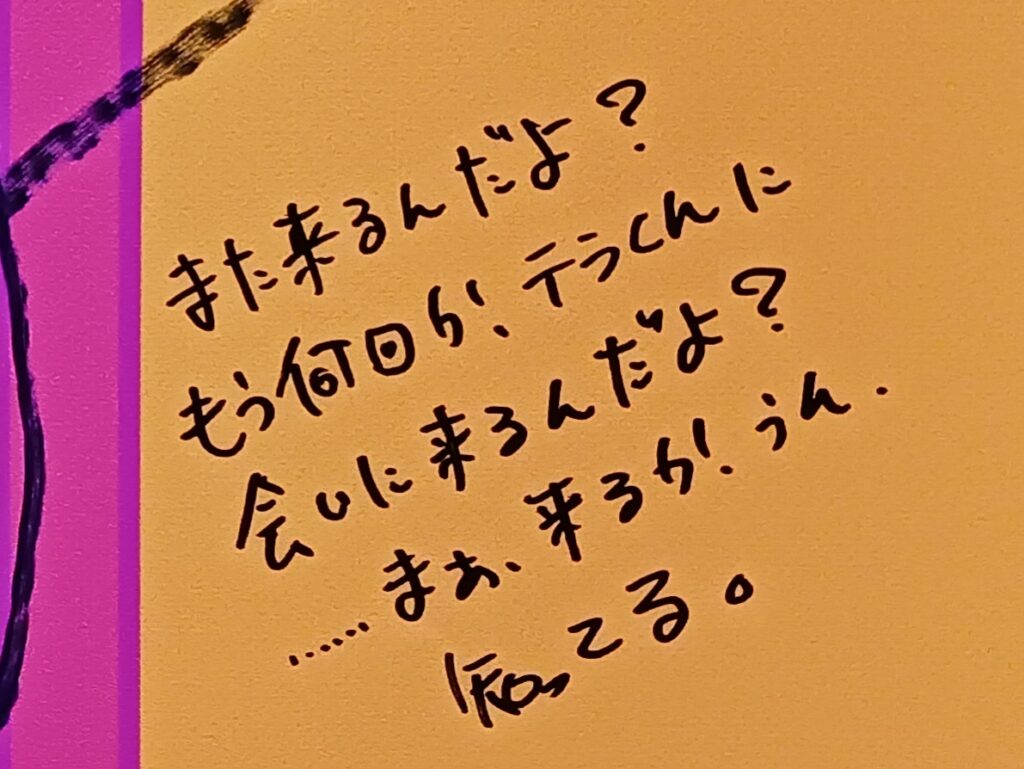 また来るんだよ?
もう何回か!、テラくんに
会いに来るんだよ?
……まぁ、来るか!、うん.
知ってる。